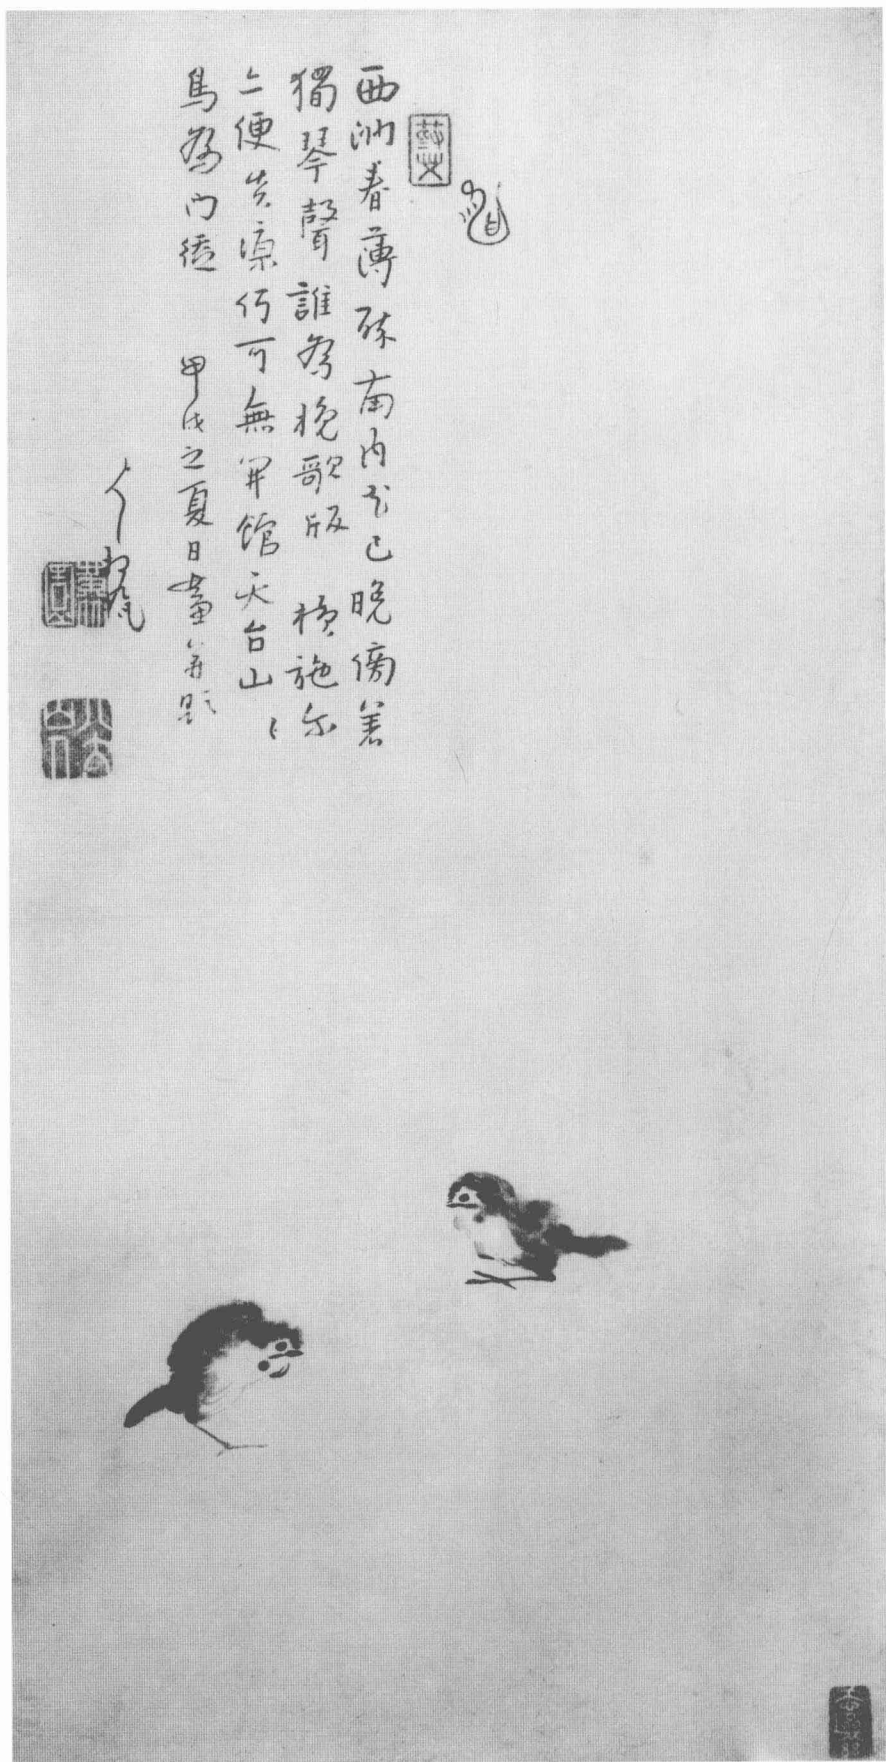 西洲春薄醉南内花已晚傍著
獨琴聲誰為挽歌版 橫施尔
亦便炎凉何可無開館天台山〻
鳥為門徒 甲戌之夏日畫并題
八大山人
八大山人